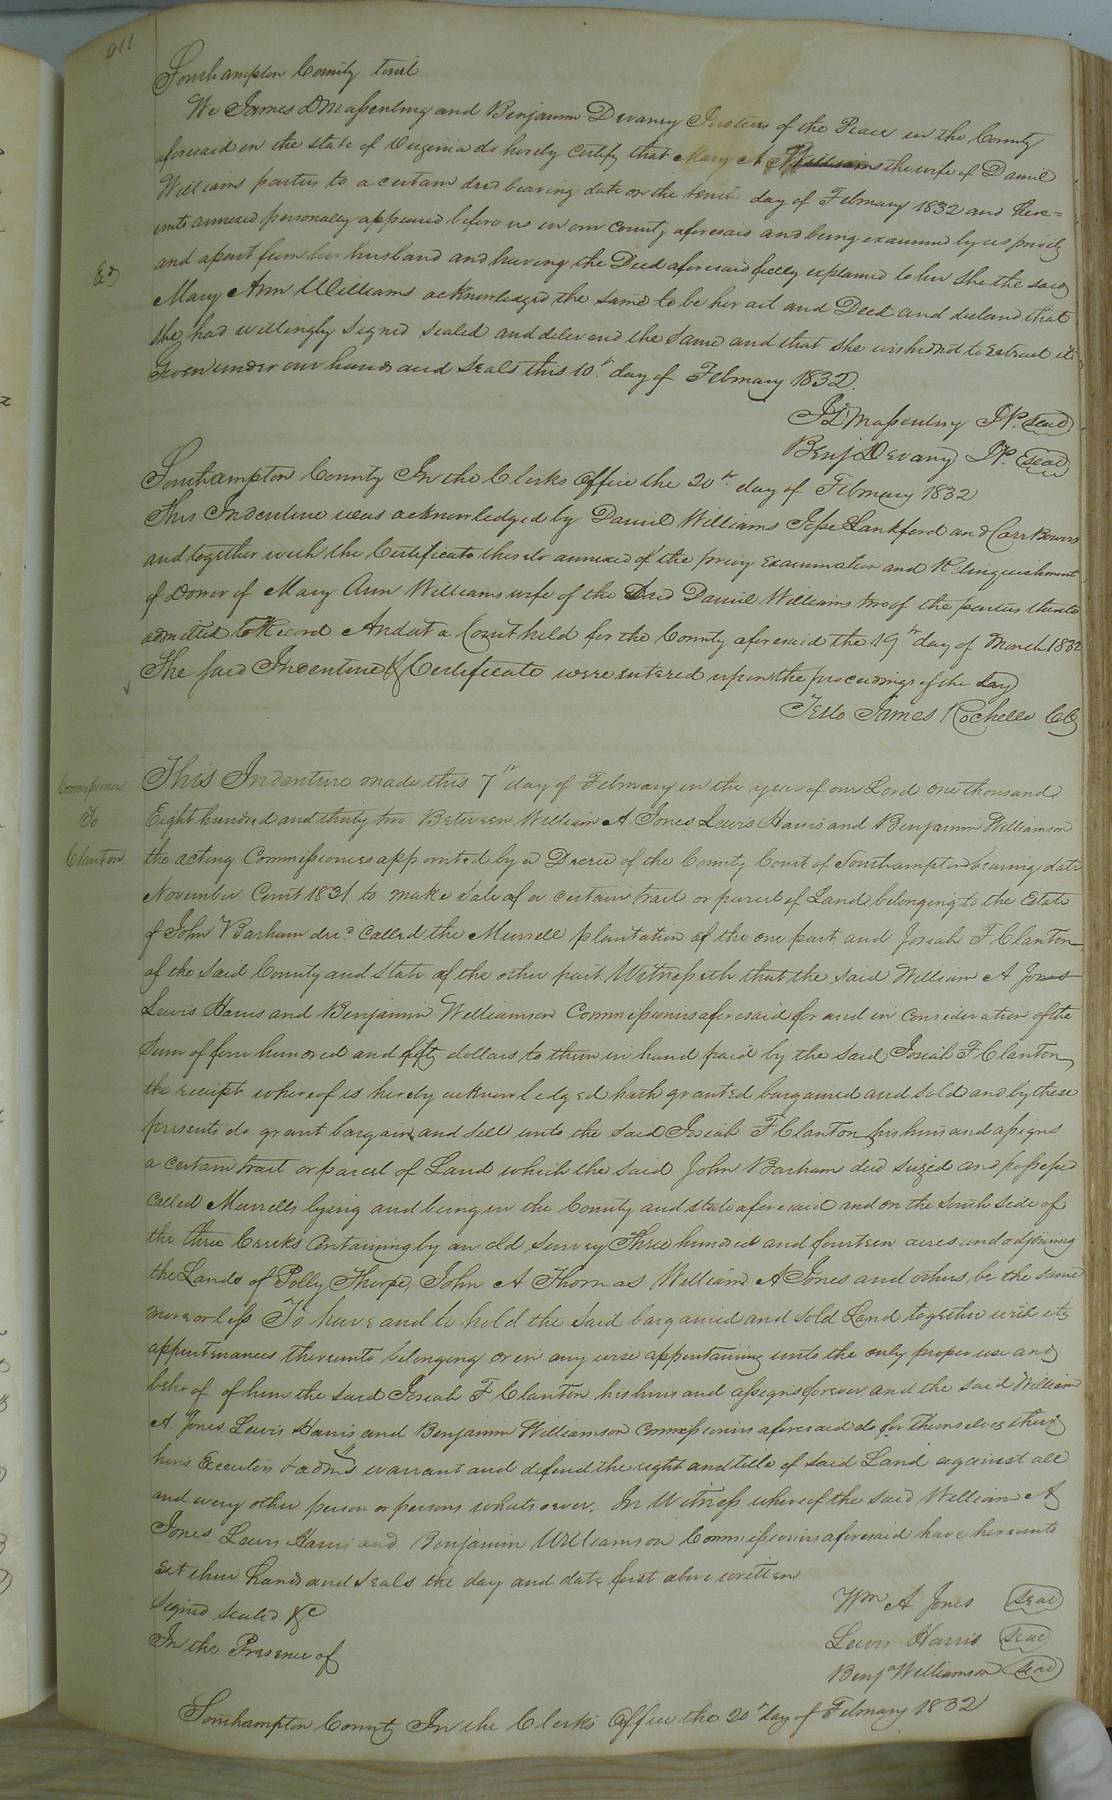 211
Southampton County Towit
We James D Massenburg and Benjamin Devaney Justices of the Peace in the County
aforesaid in the state of Virginia do hereby certify that Mary A Williams the wife of Daniel
Williams parties to a certain deed bearing date on the tenth day of February 1832 and here=
unto annexed personally appeared before us in our County aforesaid and being examined by us privily
and apart from her husband and having the Deed aforesaid fully explained to her she the said
Exd
Mary Ann Williams acknowledged the same to be her act and Deed and declared that
She had willingly signed sealed and delivered the same and that she wished not to retract it
Given under our hands and Seals this 10th day of February 1832.
JD Massenburg JP. Seal
Benj Devany JP. Seal
Southampton County In the Clerks Office the 20th day of February 1832
This Indenture was acknowledged by Daniel Williams Jesse Lankford and Carr Bowers
and together with the Certificate thereto annexed of the privy examination and Relinquishment
of Dower of Mary Ann Williams wife of the Said Daniel Williams two of the parties thereto
admitted to Record And at a Court held for the County aforesaid the 19th day of March 1832
The said Indenture & Certificate were entered upon the proceedings of the day
Teste James Rochelle CC
Commissioners
To
Clanton
This Indenture made this 7th day of February in the year of our Lord one thousand
Eight hundred and thirty two Between William A. Jones Lewis Harris and Benjamin Williamson
the acting Commissioners appointed by a Decree of the County Court of Southampton bearing date
November Court 1831, to make sale of a certain tract or parcel of Land belonging to the Estate
of John Barham decd Called the Murrell plantation of the one part and Josiah F. Clanton
of the said County and State of the other part Witnesseth that the said William A Jones
Lewis Harris and Benjamin Williamson Commissioners aforesaid for and in Consideration of the
Sum of four hundred and fifty dollars to them in hand paid by the said Josiah F Clanton
the receipt whereof is hereby acknowledged hath granted bargained and sold and by these
presents do grant bargain and sell unto the said Josiah F Clanton his heirs and assigns
a certain tract or parcel of Land which the said John Barham died seized and possessed
called Murrells lying and being in the County and state aforesaid and on the South side of
the three Creeks Containing by an old survey Three hundred and fourteen acres and adjoining
the Lands of Polly Thorpe, John A Thomas William A Jones and others be the same
more or less To have and to hold the said bargained and sold Land together with its
appurtenances thereunto belonging or in any wise appertaining unto the only proper use and
behoof of him the said Josiah F Clanton his heirs and assigns forever and the said William
A Jones Lewis Harris and Benjamin Williamson commissioners aforesaid do for themselves their
heirs Executors & admrs warrant and defend the right and title of said Land against all
and every other person or persons whatsoever. In Witness whereof the said William A
Jones Lewis Harris and Benjamin Williamson Commissioners aforesaid have hereunto
set their hands and seals the day and date first above written
Signed sealed &c
In the Presence of
Wm A Jones Seal
Lewis Harris Seal
Benj Williamson Seal
Southampton County In the Clerks Office the 20th day of February 1832